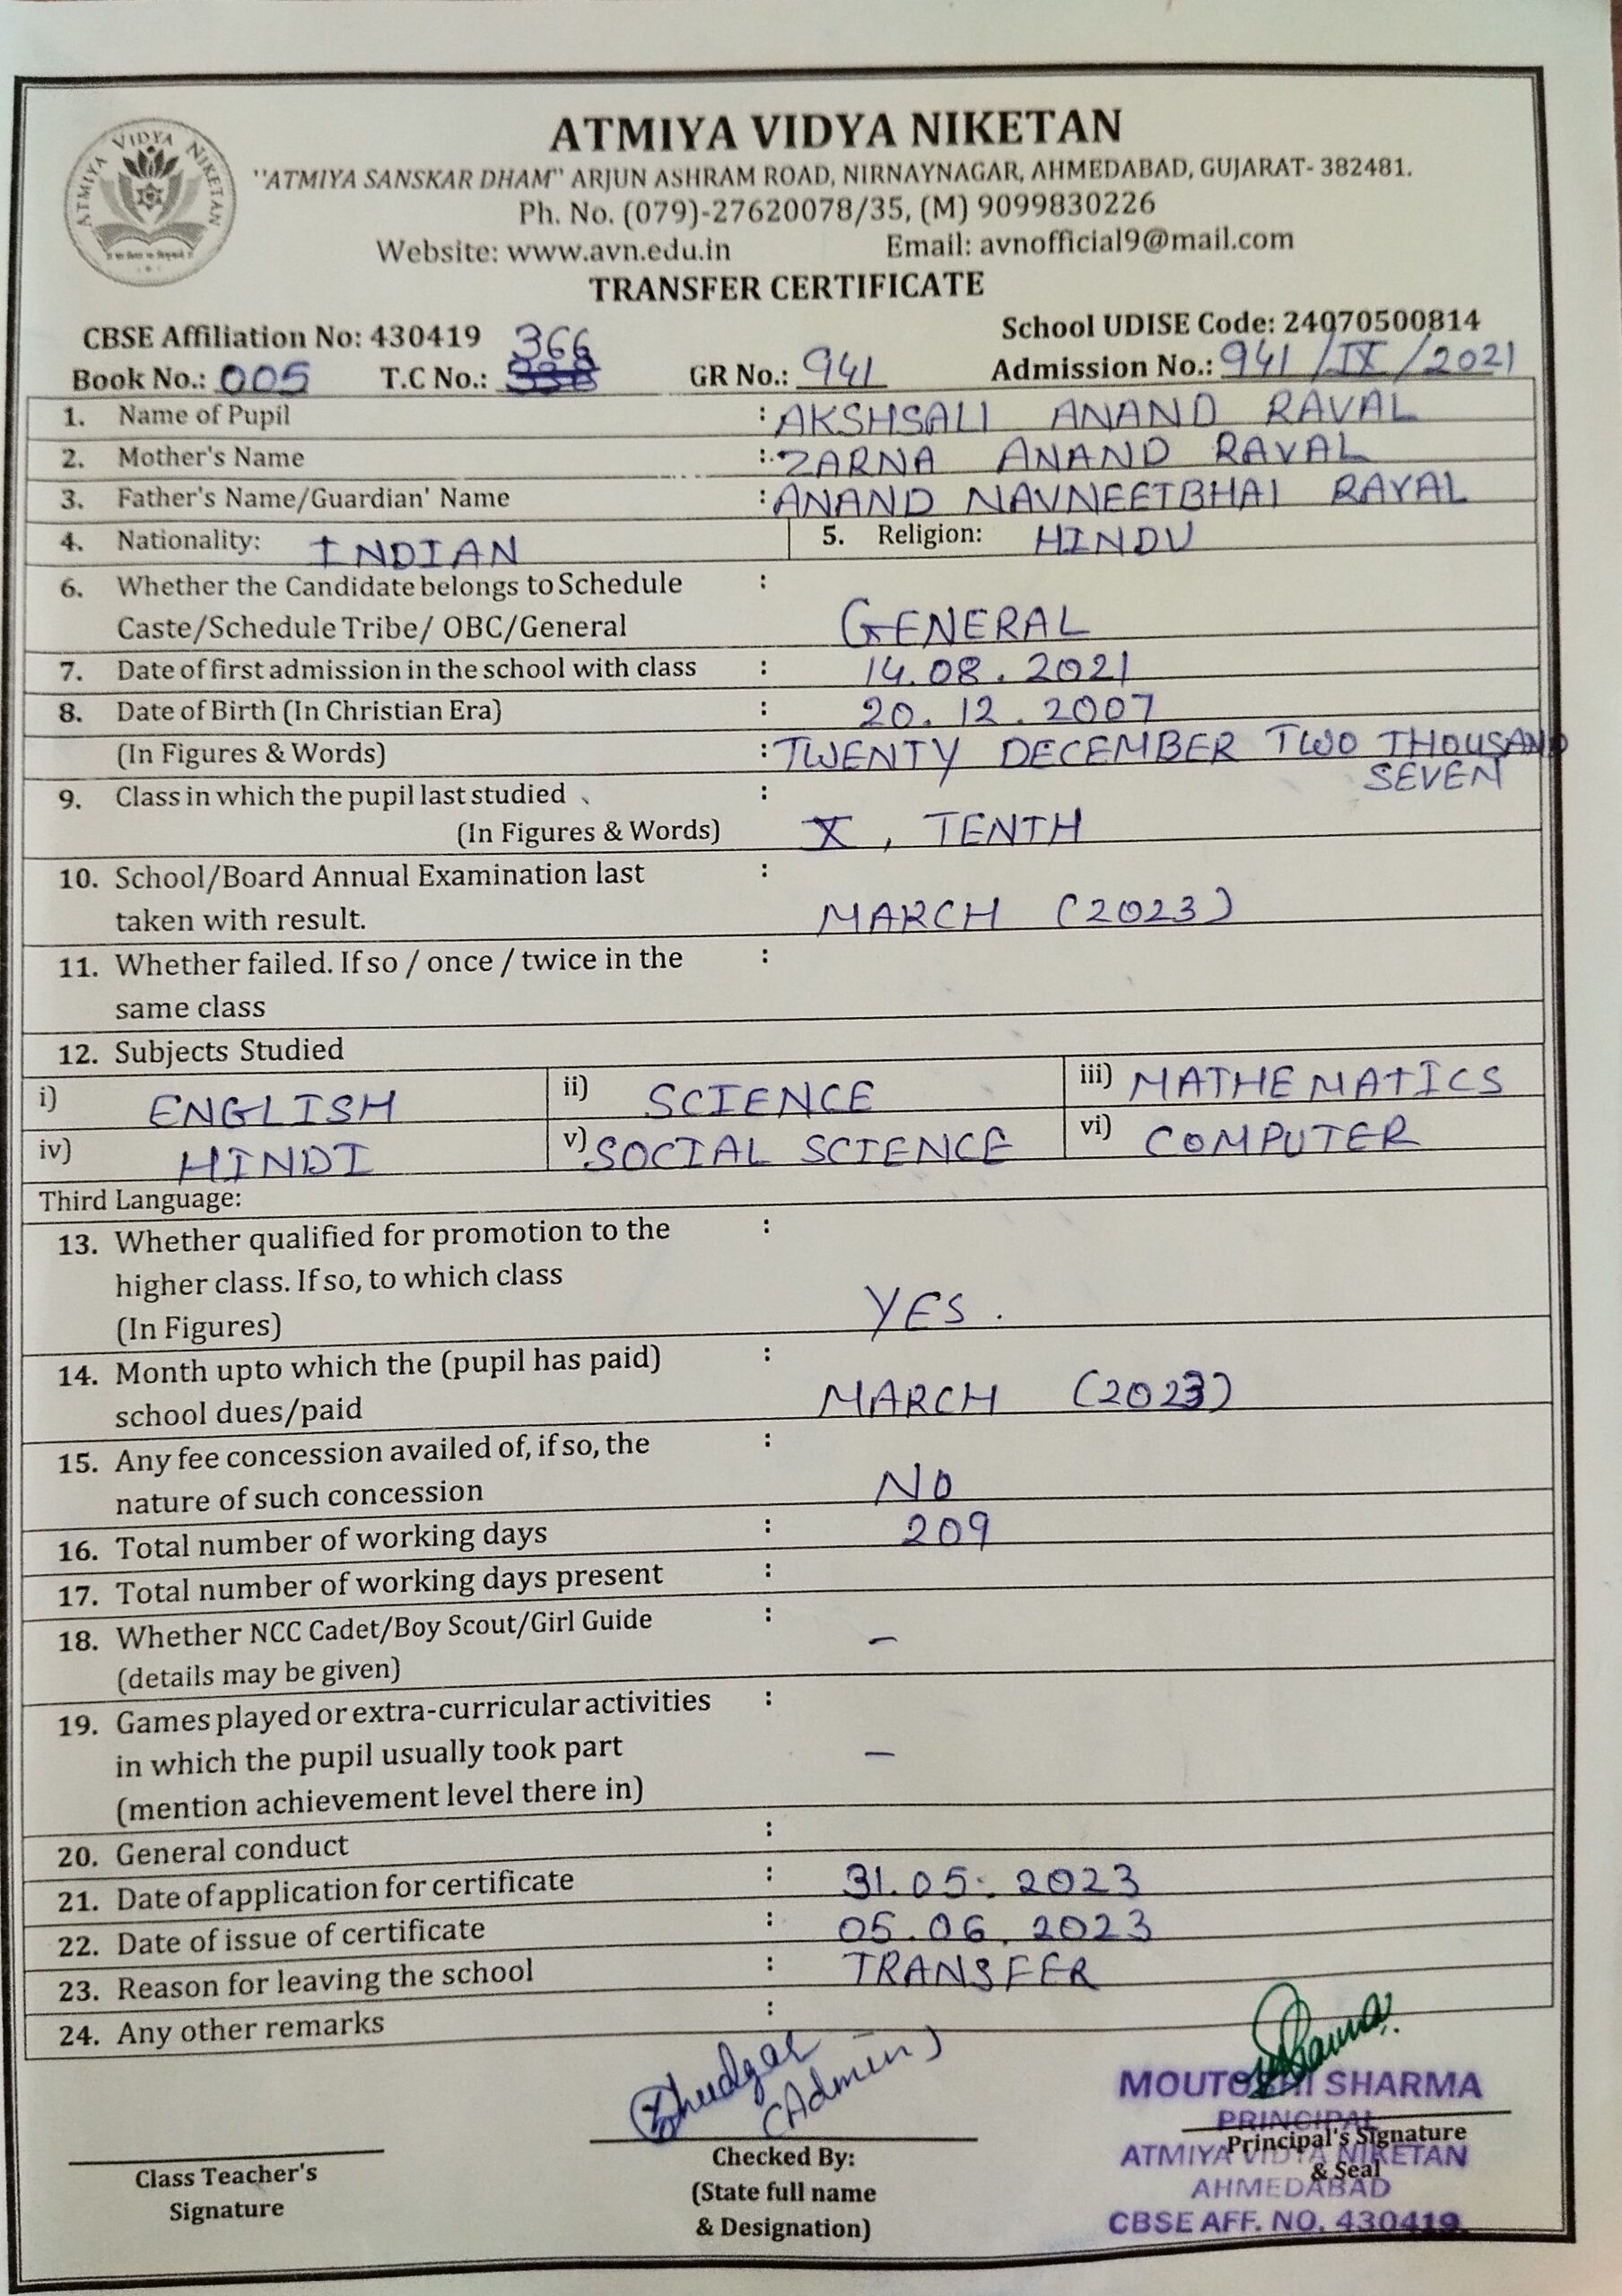 ATMIYA VIDYA NIKETAN
ATMIYA VIDYA NIKETAN
"ATMIYA SANSKAR DHAM" ARJUN ASHRAM ROAD, NIRNAYNAGAR, AHMEDABAD, GUJARAT- 382481.
Ph. No. (079)-27620078/35, (M) 9099830226
Website: www.avn.edu.in Email: avnofficial9@mail.com
TRANSFER CERTIFICATE
CBSE Affiliation No: 430419 School UDISE Code: 24070500814
366
Book No.: 005 T.C No.: 338 GR No.: 941 Admission No.: 941/IX/2021
1. Name of Pupil : AKSHSALI ANAND RAVAL
2. Mother's Name : ZARNA ANAND RAVAL
3. Father's Name/Guardian' Name : ANAND NAVNEETBHAI RAVAL
4. Nationality: INDIAN 5. Religion: HINDU
6. Whether the Candidate belongs to Schedule :
Caste/Schedule Tribe/ OBC/General GENERAL
7. Date of first admission in the school with class : 14.08.2021
8. Date of Birth (In Christian Era) : 20.12.2007
(In Figures & Words) : TWENTY DECEMBER TWO THOUSAND
SEVEN
9. Class in which the pupil last studied :
(In Figures & Words) X, TENTH
10. School/Board Annual Examination last :
taken with result. MARCH (2023)
11. Whether failed. If so / once / twice in the :
same class
12. Subjects Studied
i) ENGLISH ii) SCIENCE iii) MATHEMATICS
iv) HINDI v) SOCIAL SCIENCE vi) COMPUTER
Third Language:
13. Whether qualified for promotion to the :
higher class. If so, to which class
(In Figures) YES.
14. Month upto which the (pupil has paid) :
school dues/paid MARCH (2023)
15. Any fee concession availed of, if so, the :
nature of such concession NO
16. Total number of working days : 209
17. Total number of working days present :
18. Whether NCC Cadet/Boy Scout/Girl Guide :
(details may be given) –
19. Games played or extra-curricular activities :
in which the pupil usually took part –
(mention achievement level there in)
20. General conduct :
21. Date of application for certificate : 31.05.2023
22. Date of issue of certificate : 05.06.2023
23. Reason for leaving the school : TRANSFER
24. Any other remarks :
(Admin)
MOUTOSHI SHARMA
PRINCIPAL
Principal's Signature
ATMIYA VIDYA NIKETAN
& Seal
AHMEDABAD
CBSE AFF. NO. 430419
Class Teacher's
Signature
Checked By:
(State full name
& Designation)